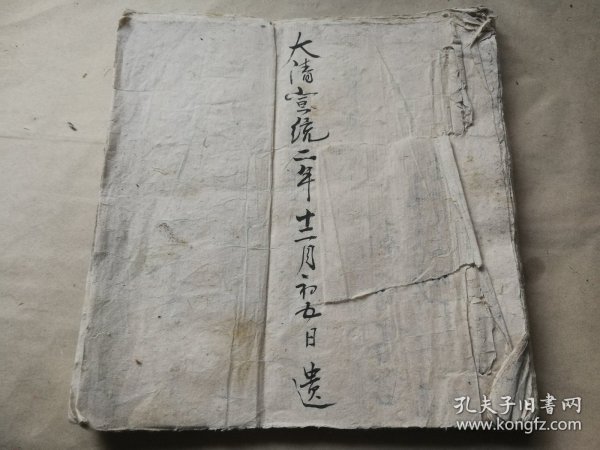 大清宣统二年十二月初五日遗
孔夫子旧書网
www.kongfz.com